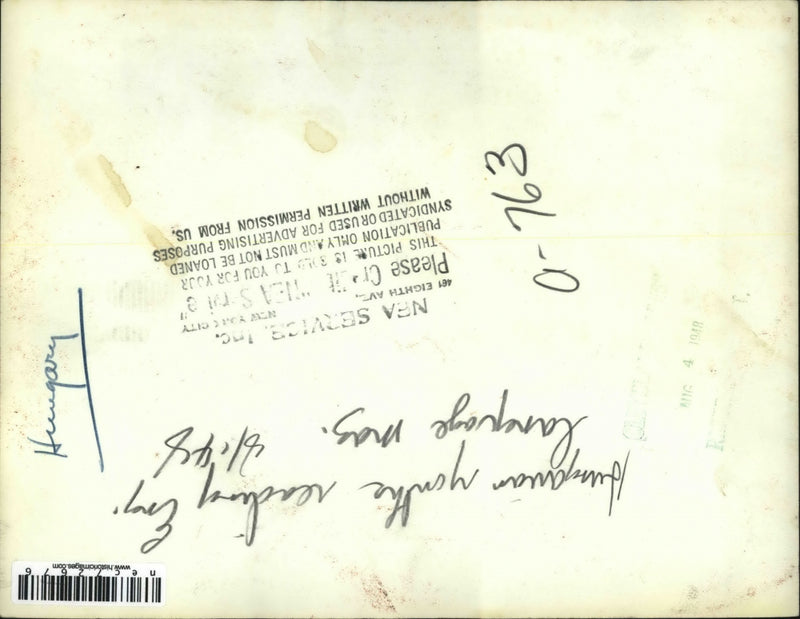 Hungarian youths reading Eng.
language mag. 6/48
NEA SERVICE, Inc.
461 EIGHTH AVE., NEW YORK CITY
Please Credit "NEA Service"
THIS PICTURE IS SOLD TO YOU FOR YOUR
PUBLICATION ONLY AND MUST NOT BE LOANED
SYNDICATED OR USED FOR ADVERTISING PURPOSES
WITHOUT WRITTEN PERMISSION FROM US.
Hungary
0-763
AUG 4 1948
nec72676
www.historicimages.com